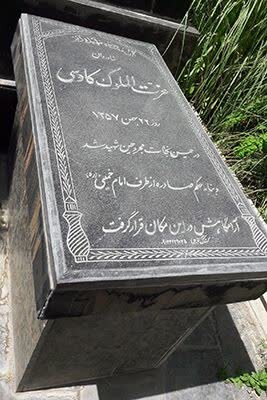 شادروان
عزت الملوک کاوسی
روز ۲۲ بهمن ۱۳۵۷
در حین وفات مجروحین شهید شد
و بنا به حکم صادره از طرف امام خمینی (ره)
آرامگاهش در این مکان قرار گرفت